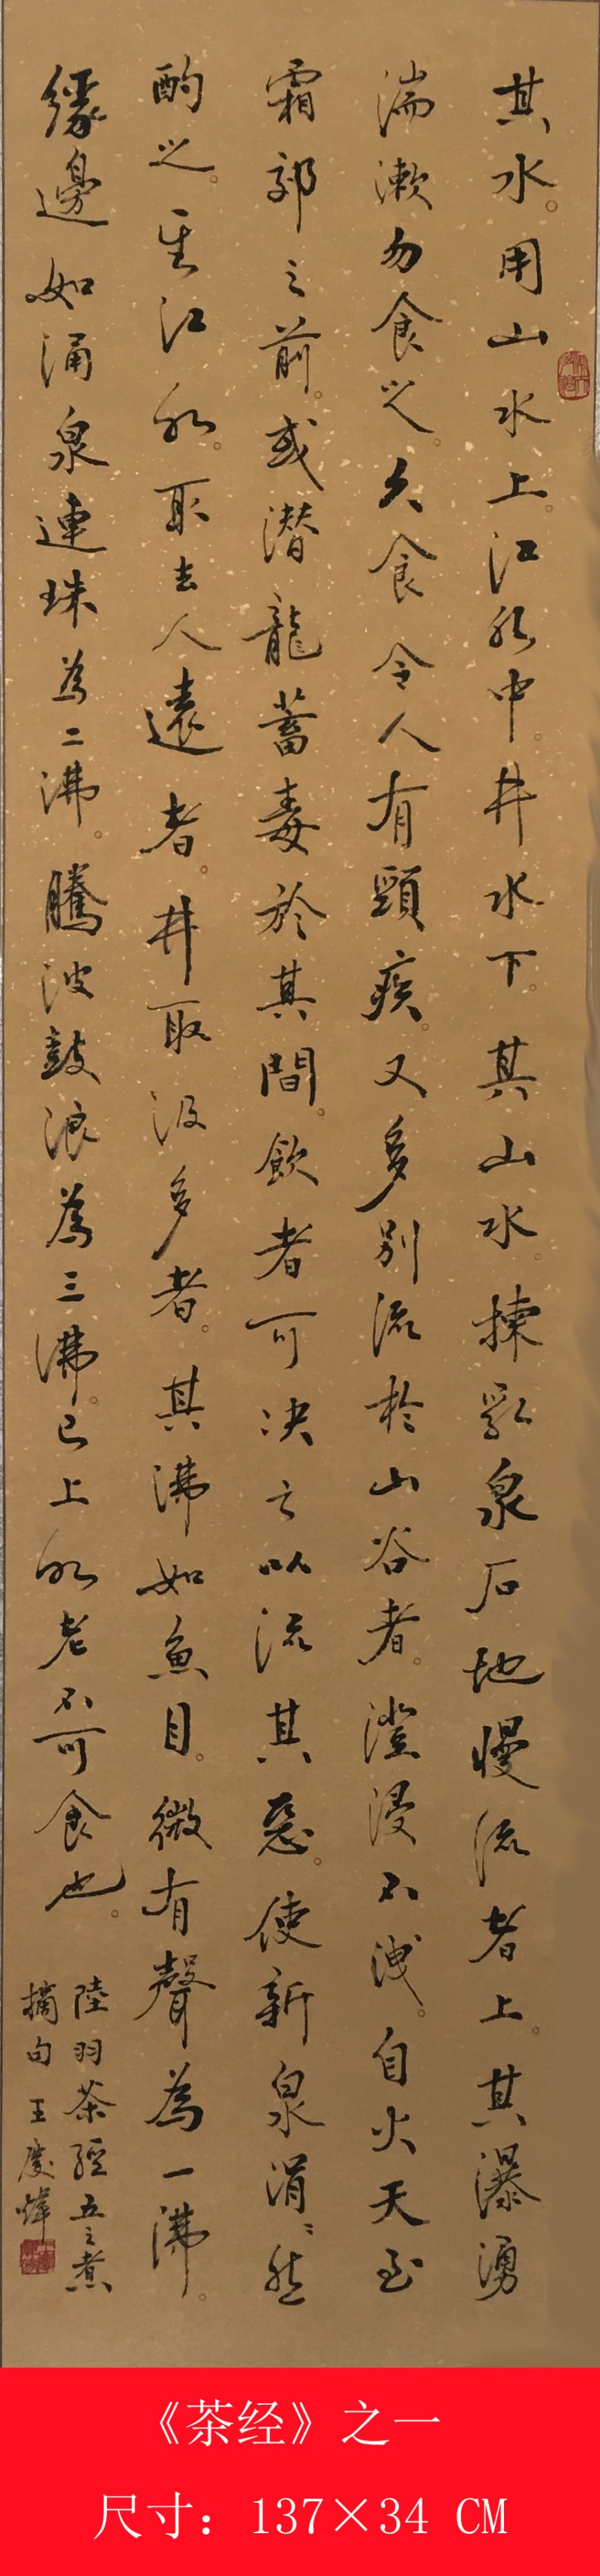 其水。用山水上。江水中。井水下。其山水。揀乳泉石地慢流者上。其瀑湧
湍漱勿食之。久食令人有頸疾。又多別流於山谷者。澄浸不洩。自火天至
霜郊之前。或潛龍蓄毒於其間。飲者可決之以流其惡。使新泉涓涓然
酌之。其江水。取去人遠者。井取汲多者。其沸如魚目。微有聲為一沸。
緣邊如涌泉連珠為二沸。騰波鼓浪為三沸。已上水老不可食也。
陸羽茶經五之煮
摘句王慶煒
《茶经》之一
尺寸：137×34 CM